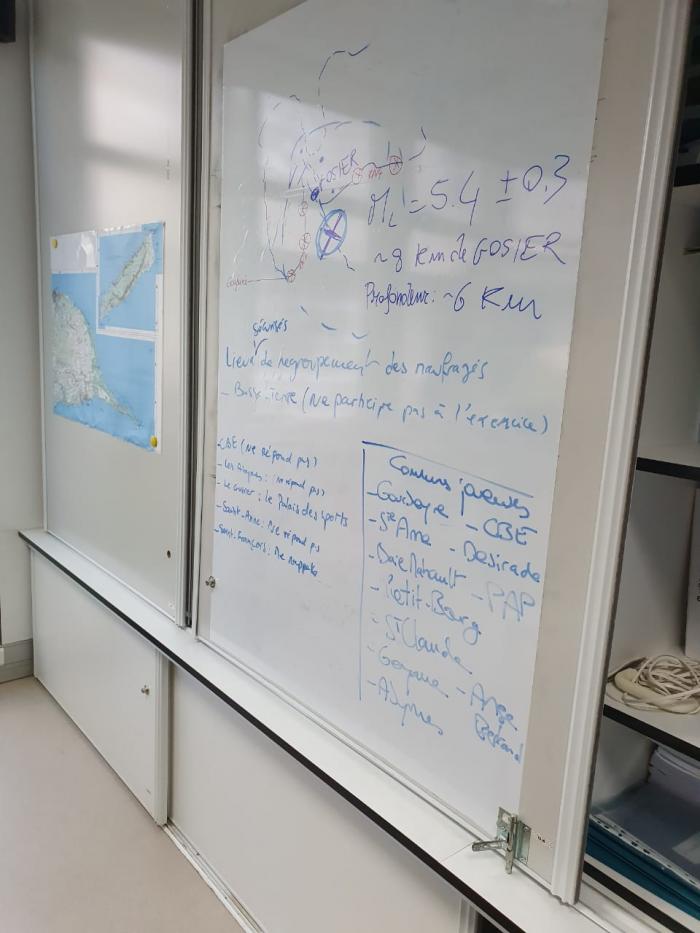 GOSIER
ML = 5.4 ± 0.3
~8 Km de GOSIER
Profondeur: ~6 Km
sécurisés
Lieux de regroupement des naufragés
- Basse-Terre (Ne participe pas à l'exercice)
- CBE (ne répond pas)
- Les Abymes: (ne répond pas)
- Le Gosier: le Palais des sports
- Saint-Anne: Ne répond ps
- Saint-François: Me rappelle
- CBE
- Ste Anne - Desirade
- Baie Mahault - PAP
- Petit-Bourg
- St Claude
- Goyave - Anse
Bertrand
- Abymes